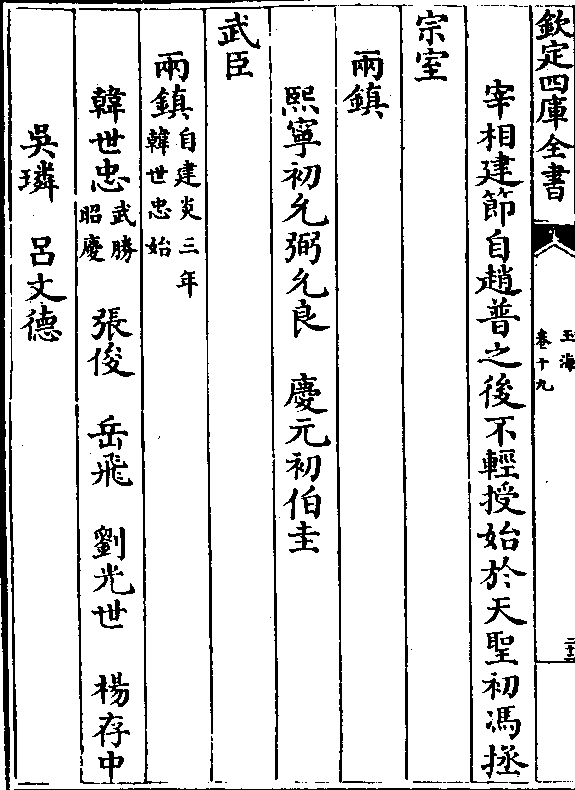 欽定四庫全書
玉海
卷十九
宰相建節自趙普之後不輕授始於天聖初馮拯
宗室
兩鎮
熙寧初允弼允良 慶元初伯圭
武臣
兩鎮自建炎三年韓世忠始
韓世忠武勝昭慶 張俊 岳飛 劉光世 楊存中
吳璘 呂文德